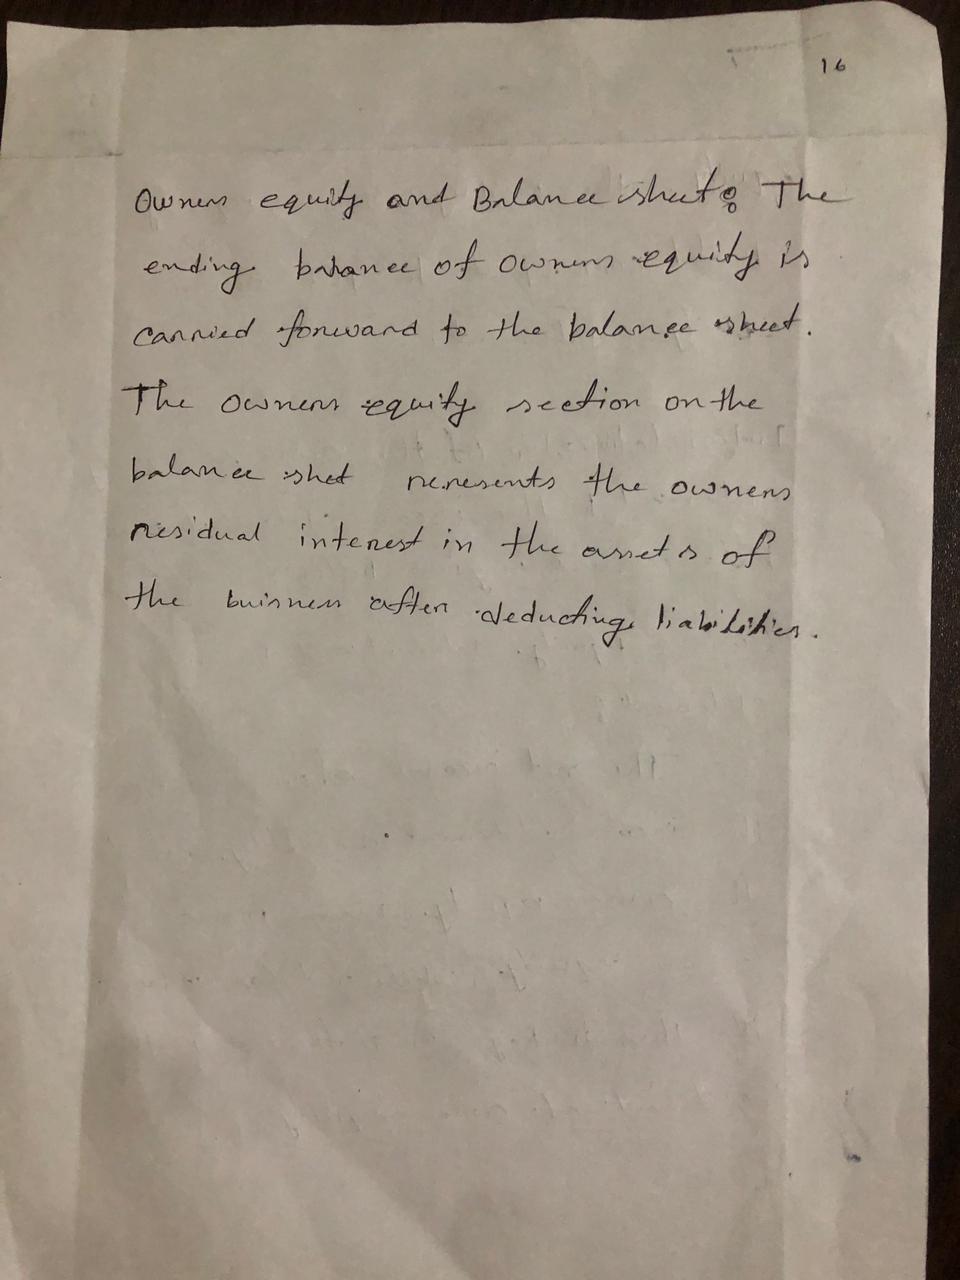 16
Owners equity and Balance sheet: The
ending balance of owners equity is
carried forward to the balance sheet.
The owners equity section on the
balance shet reresents the owners
residual interest in the assets of
the buisness after deducting liabilities.